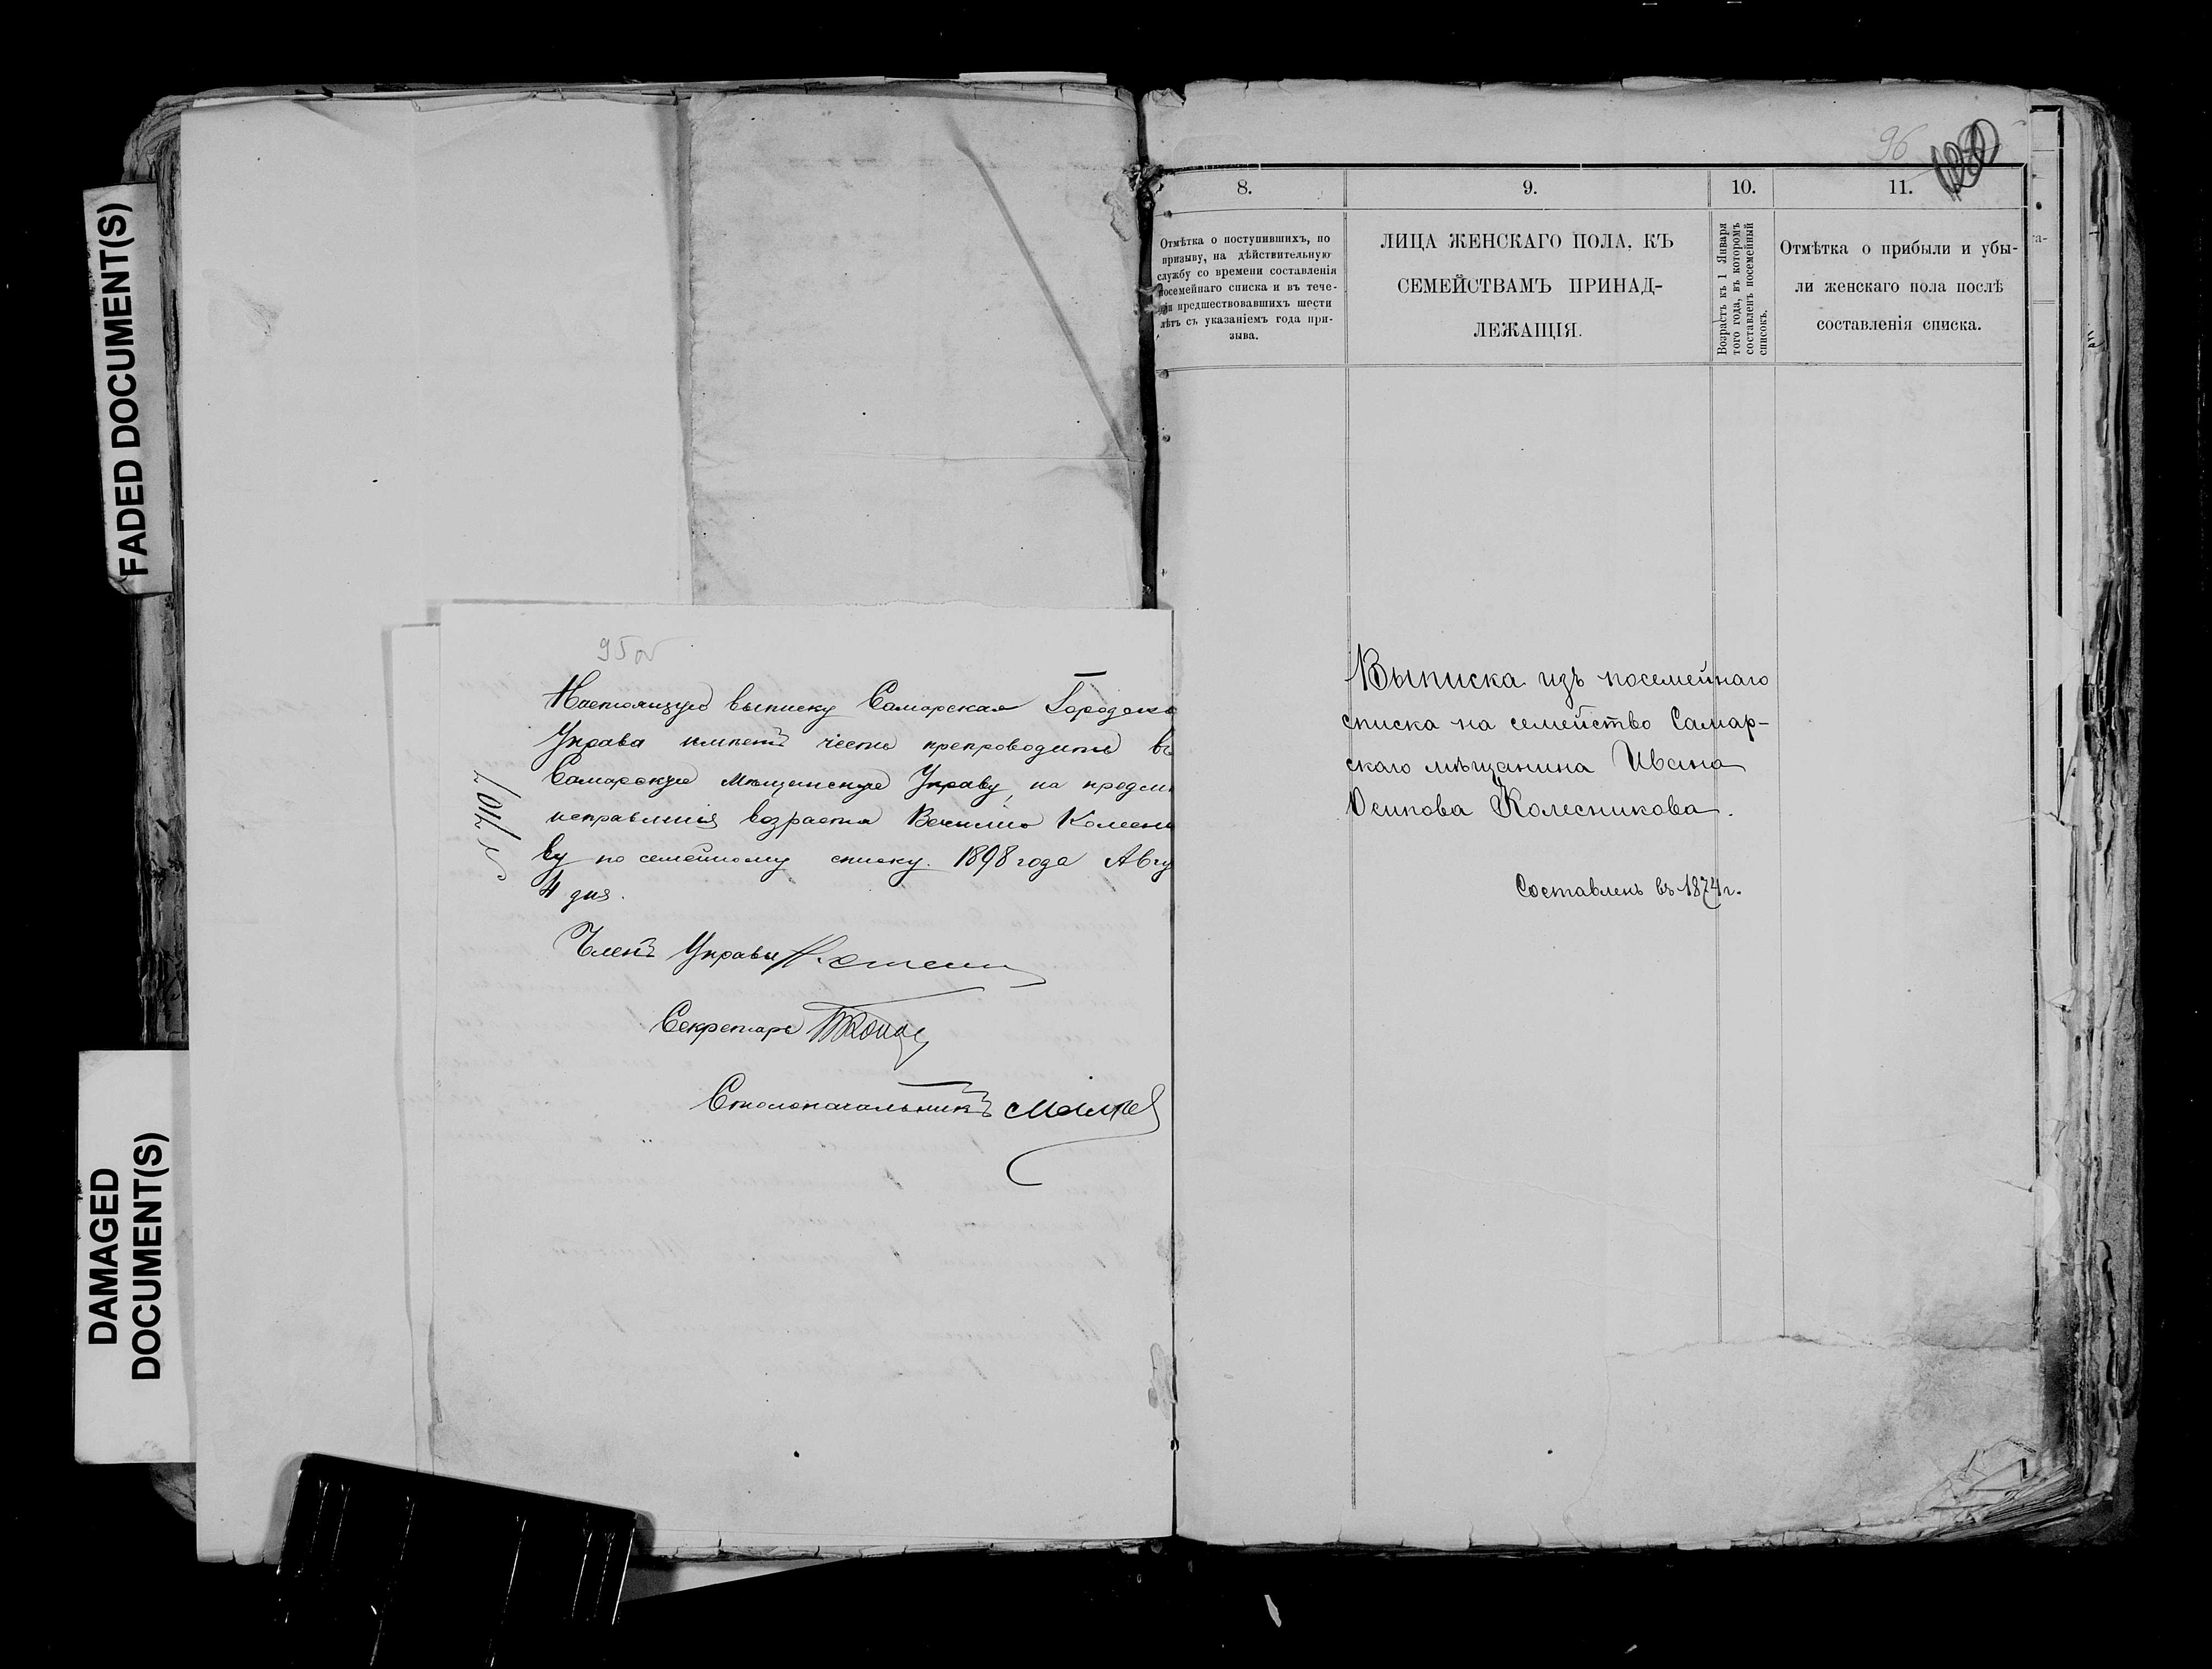 FADED DOCUMENT(S)
DAMAGED
DOCUMENT(S)
95об
Настоящую выписку Самарская Городска
Управа имѣетъ честь препроводить въ
Самарскую Мѣщанскую Управу, на предм
исправленія возраста Василію Колесни
ву по семейному списку. 1898 года Авгу
4 дня.
Членъ Управы
Секретарь
Столоначальникъ
96
8.
Отмѣтка о поступившихъ, по
призыву, на дѣйствительную
службу со времени составленія
посемейнаго списка и въ тече-
ніи предшествовавшихъ шести
лѣтъ съ указаніемъ года при-
зыва.
9.
ЛИЦА ЖЕНСКАГО ПОЛА, КЪ
СЕМЕЙСТВАМЪ ПРИНАД-
ЛЕЖАЩІЯ.
10.
Возрастъ къ 1 Января
того года, въ которомъ
составленъ посемейный
списокъ.
11.
Отмѣтка о прибыли и убы-
ли женскаго пола послѣ
составленія списка.
Выписка изъ посемейнаго
списка на семейство Самар-
скаго мѣщанина Ивана
Осипова Колесникова.
Составленъ въ 1874 г.